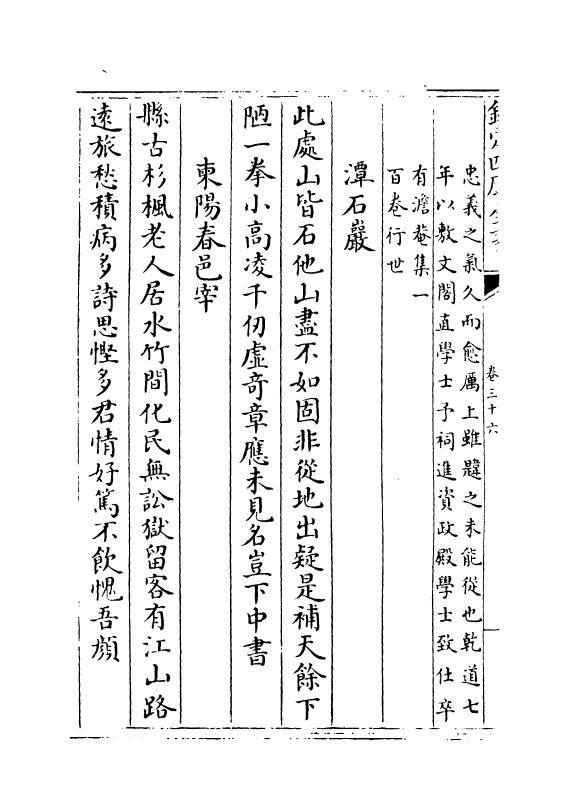 欽定四庫全書
卷三十六
忠義之氣久而愈厲上雖韙之未能從也乾道七
年以敷文閣直學士予祠進資政殿學士致仕卒
有澹菴集一
百卷行世
潭石巖
此處山皆石他山盡不如固非從地出疑是補天餘下
陋一拳小高凌千仞虛奇章應未見名豈下中書
東陽春邑宰
縣古杉楓老人居水竹間化民無訟獄留客有江山路
遠旅愁積病多詩思慳多君情好篤不飲愧吾顔